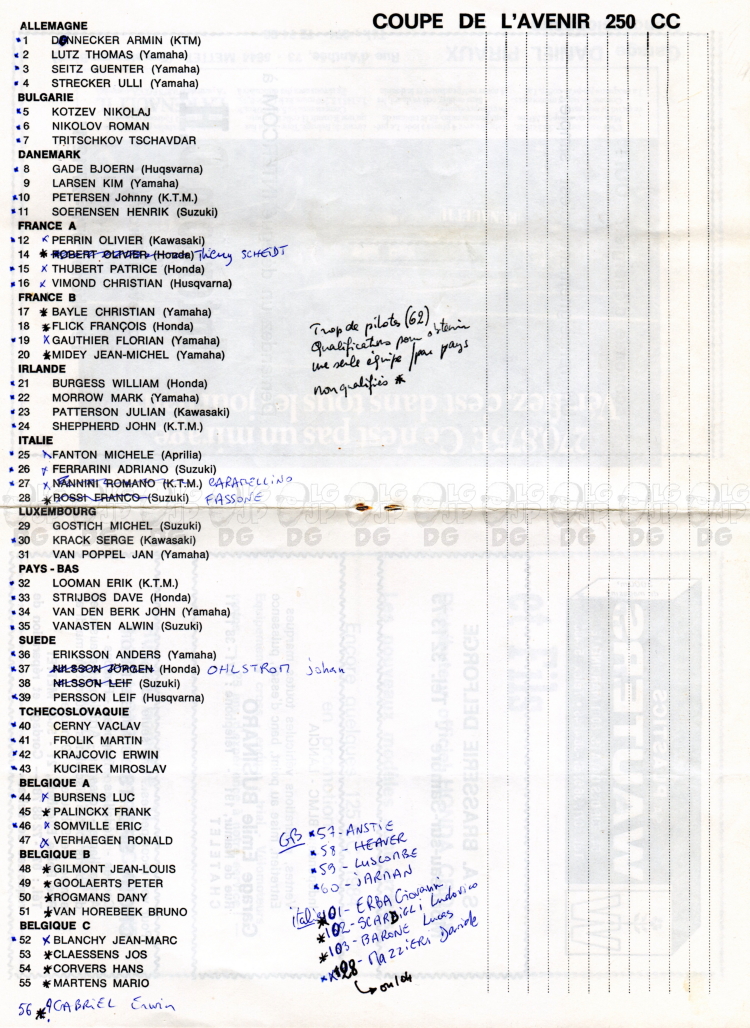 COUPE DE L'AVENIR 250 CC
ALLEMAGNE
1 DONNECKER ARMIN (KTM)
2 LUTZ THOMAS (Yamaha)
3 SEITZ GUENTER (Yamaha)
4 STRECKER ULLI (Yamaha)
BULGARIE
5 KOTZEV NIKOLAJ
6 NIKOLOV ROMAN
7 TRITSCHKOV TSCHAVDAR
DANEMARK
8 GADE BJOERN (Huqsvarna)
9 LARSEN KIM (Yamaha)
10 PETERSEN Johnny (K.T.M.)
11 SOERENSEN HENRIK (Suzuki)
FRANCE A
12 x PERRIN OLIVIER (Kawasaki)
14 * ROBERT OLIVIER (Honda) Thierry SCHEIDT
15 x THUBERT PATRICE (Honda)
16 x VIMOND CHRISTIAN (Husqvarna)
FRANCE B
17 * BAYLE CHRISTIAN (Yamaha)
18 * FLICK FRANÇOIS (Honda)
19 x GAUTHIER FLORIAN (Yamaha)
20 * MIDEY JEAN-MICHEL (Yamaha)
Trop de pilotes (62)
Qualifications pour obtenir
une seule équipe / par pays
non qualifiés *
IRLANDE
21 BURGESS WILLIAM (Honda)
22 MORROW MARK (Yamaha)
23 PATTERSON JULIAN (Kawasaki)
24 SHEPPHERD JOHN (K.T.M.)
ITALIE
25 x FANTON MICHELE (Aprilia)
26 x FERRARINI ADRIANO (Suzuki)
27 x NANNINI ROMANO (K.T.M.) CARAMELLINO
28 * ROSSI FRANCO (Suzuki) FASSONE
LUXEMBOURG
29 GOSTICH MICHEL (Suzuki)
30 KRACK SERGE (Kawasaki)
31 VAN POPPEL JAN (Yamaha)
PAYS-BAS
32 LOOMAN ERIK (K.T.M.)
33 STRIJBOS DAVE (Honda)
34 VAN DEN BERK JOHN (Yamaha)
35 VANASTEN ALWIN (Suzuki)
SUEDE
36 ERIKSSON ANDERS (Yamaha)
37 NILSSON JÖRGEN (Honda) OHLSTROM johan
38 NILSSON LEIF (Suzuki)
39 PERSSON LEIF (Husqvarna)
TCHECOSLOVAQUIE
40 CERNY VACLAV
41 FROLIK MARTIN
42 KRAJCOVIC ERWIN
43 KUCIREK MIROSLAV
BELGIQUE A
44 x BURSENS LUC
45 * PALINCKX FRANK
46 x SOMVILLE ERIC
47 x VERHAEGEN RONALD
BELGIQUE B
48 * GILMONT JEAN-LOUIS
49 * GOOLAERTS PETER
50 * ROGMANS DANY
51 * VAN HOREBEEK BRUNO
BELGIQUE C
52 x BLANCHY JEAN-MARC
53 * CLAESSENS JOS
54 * CORVERS HANS
55 * MARTENS MARIO
56 * GABRIEL Erwin
GB 57-ANSTIE
58-HEAVER
59-LUSCOMBE
60-JARMAN
italie 101-ERBA Giovanni
*102-SCARDIGLI Ludovico
*103-BARONE Lucas
28-MAZZIERI Davide
ou 104